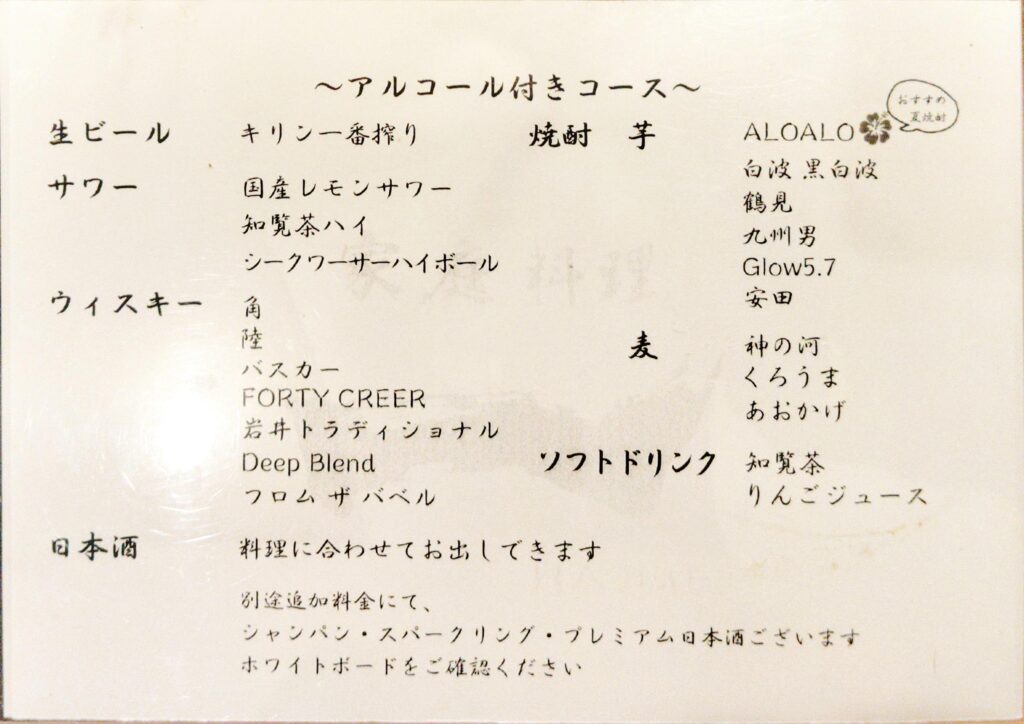 ～アルコール付きコース～
生ビール キリン一番搾り
サワー 国産レモンサワー
知覧茶ハイ
シークワーサーハイボール
ウィスキー 角
陸
バスカー
FORTY CREER
岩井トラディショナル
Deep Blend
フロム ザ バベル
日本酒 料理に合わせてお出しできます
別途追加料金にて、
シャンパン・スパークリング・プレミアム日本酒ございます
ホワイトボードをご確認ください
焼酎 芋 ALOALO
おすすめ
夏焼酎
白波 黒白波
鶴見
九州男
Glow5.7
安田
麦 神の河
くろうま
あおかげ
ソフトドリンク 知覧茶
りんごジュース
家庭料理